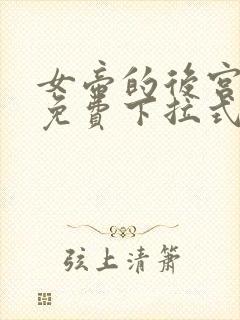 女帝的後宮
免費下拉式
弦上清簫